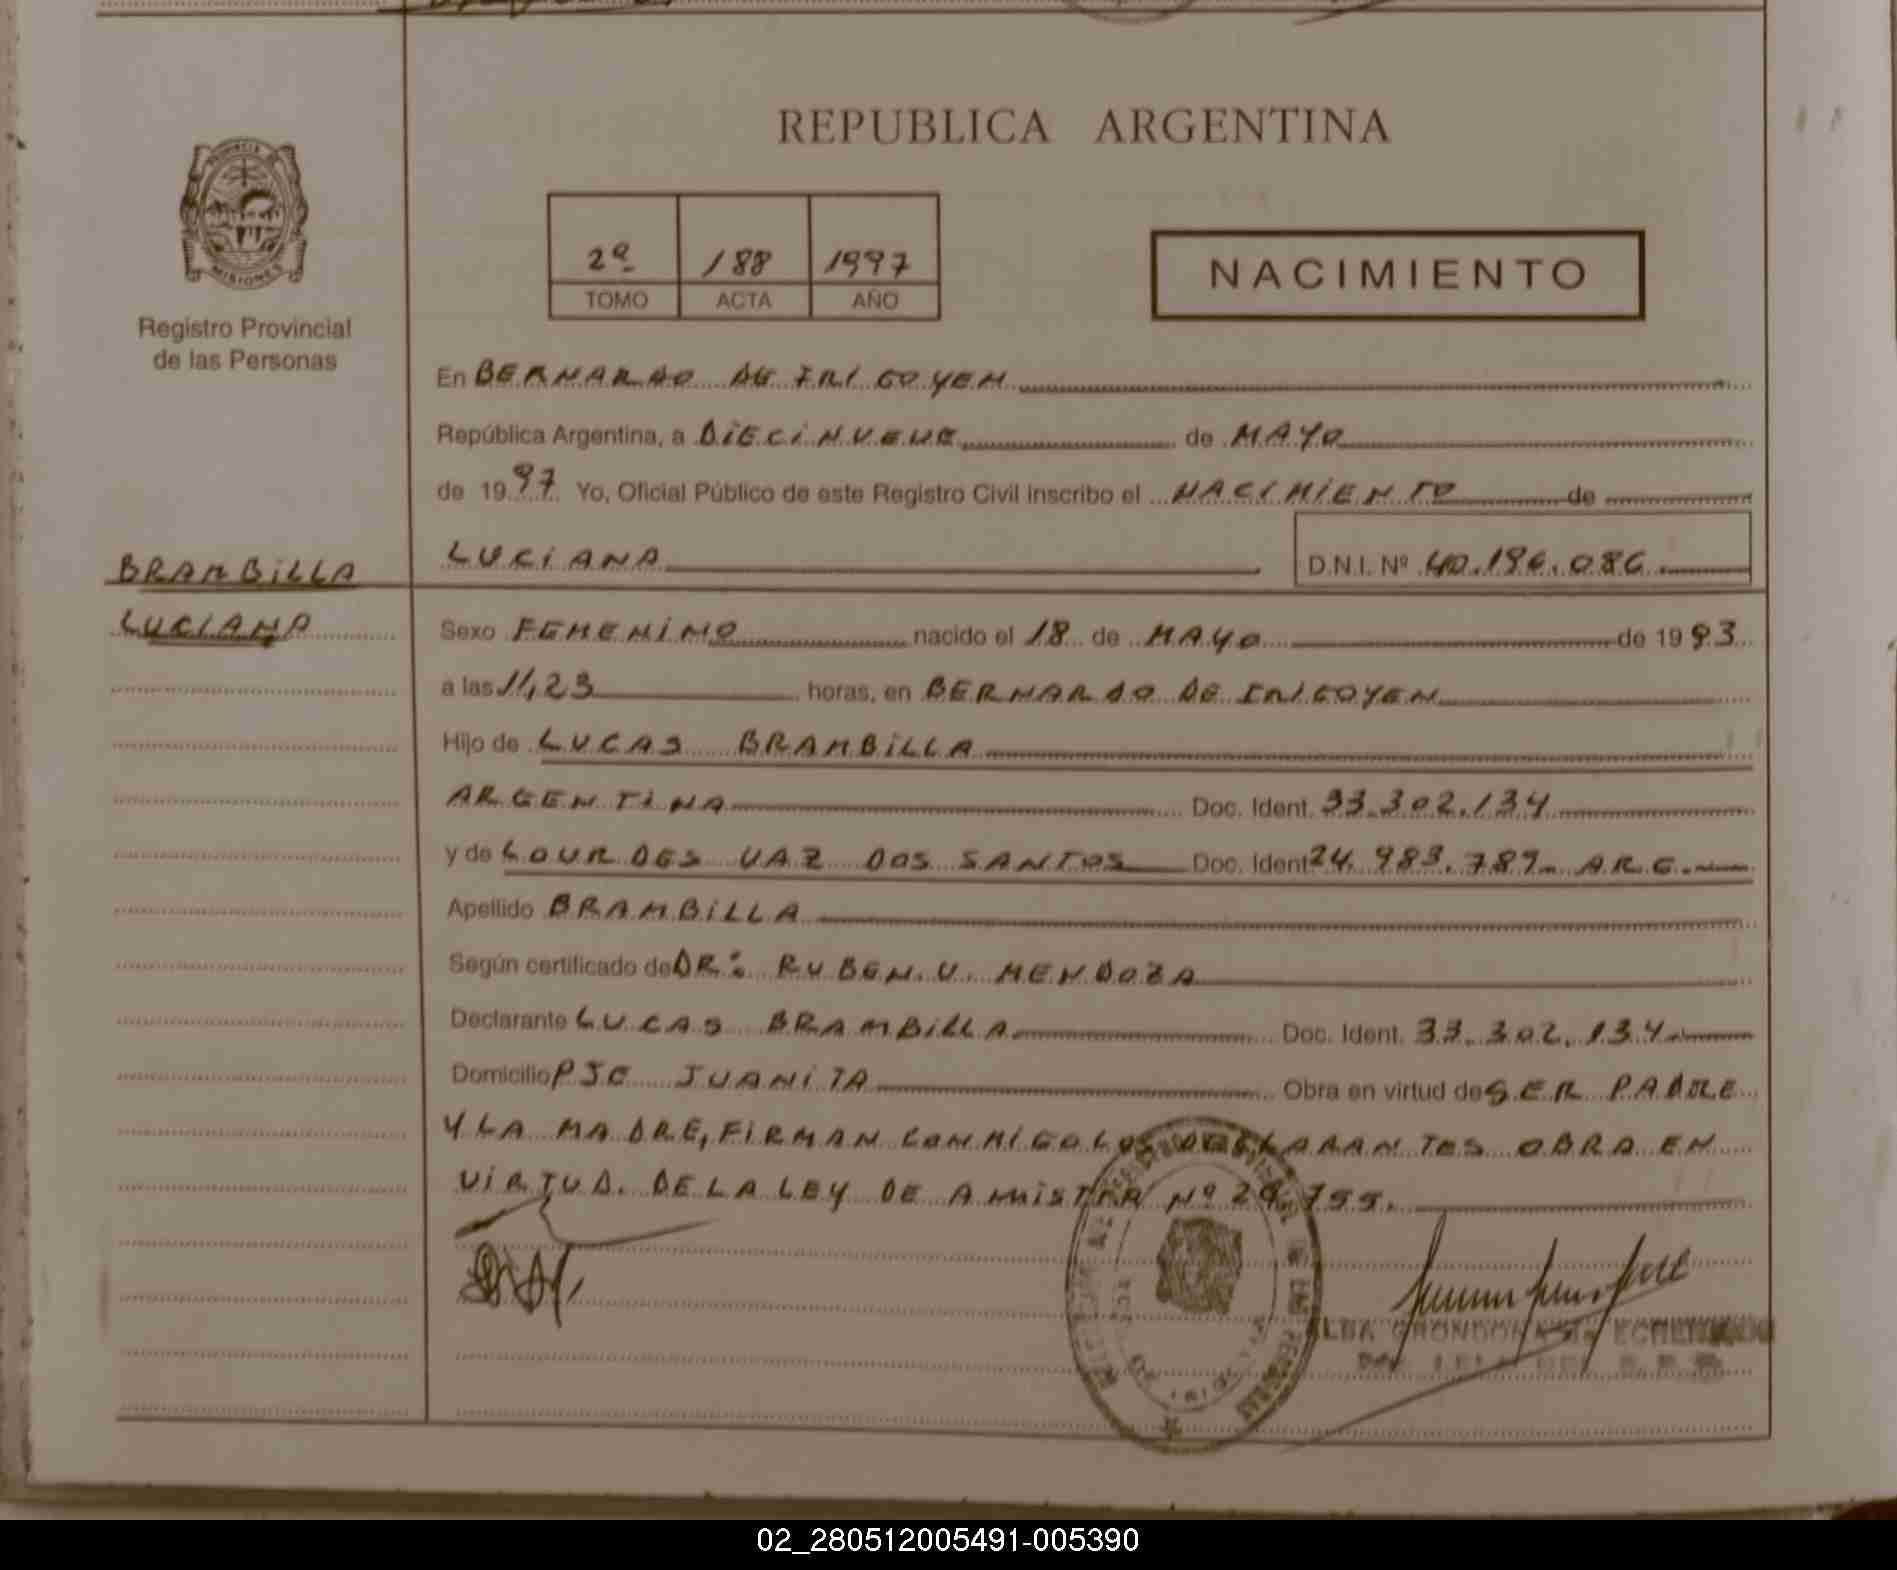 REPUBLICA ARGENTINA
PROVINCIA DE
MISIONES
Registro Provincial
de las Personas
2º 188 1997
TOMO ACTA AÑO
NACIMIENTO
En BERNARDO DE IRIGOYEN
República Argentina, a DIECINUEVE de MAYO
de 1997 Yo, Oficial Público de este Registro Civil inscribo el NACIMIENTO de
LUCIANA D.N.I. Nº 40.196.086.
BRAMBILLA
LUCIANA
Sexo FEMENINO nacido el 18 de MAYO de 1993
a las 11,23 horas, en BERNARDO DE IRIGOYEN
Hijo de LUCAS BRAMBILLA
ARGENTINA Doc. Ident. 33.302.134
y de LOURDES VAZ DOS SANTOS Doc. Ident 24.983.789 ARG.
Apellido BRAMBILLA
Según certificado de DR: RUBEN.V. MENDOZA
Declarante LUCAS BRAMBILLA Doc. Ident. 33.302.134
Domicilio PJE JUANITA Obra en virtud de SER PADRE
Y LA MADRE, FIRMAN CONMIGO LOS DECLARANTES OBRA EN
VIRTUD. DE LA LEY DE AMISTIA Nº 24.755.
02_280512005491-005390